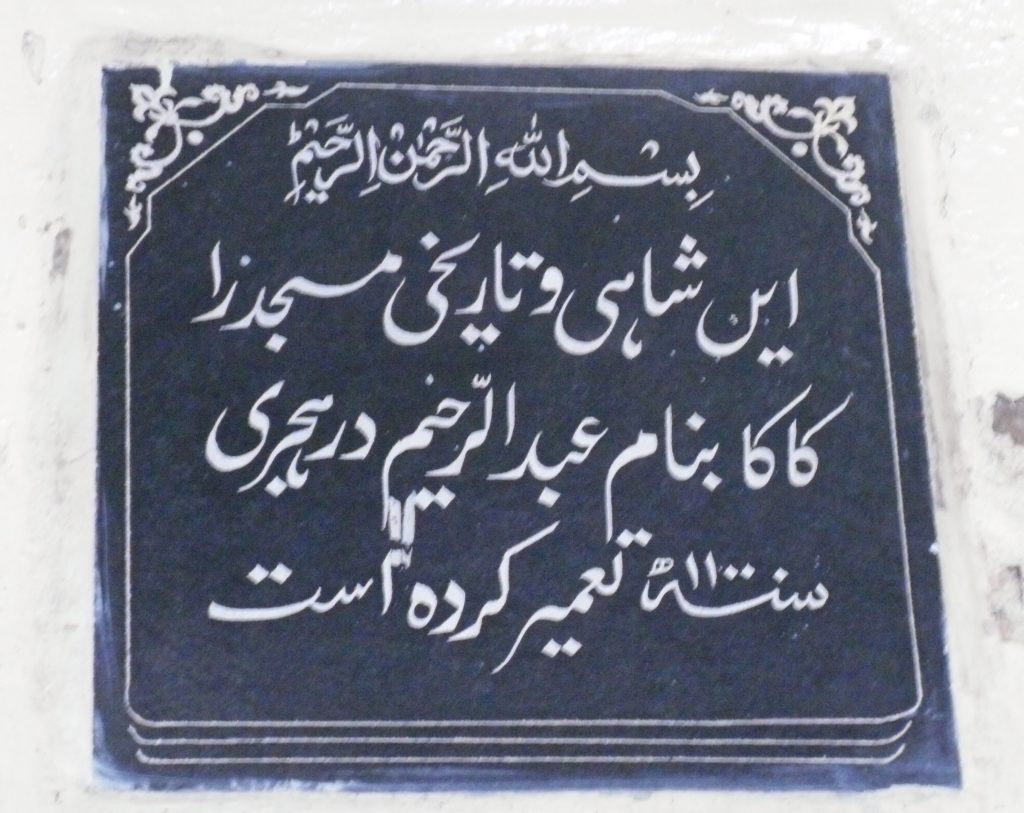 بِسْمِ اللهِ الرَّحْمٰنِ الرَّحِیْمِ
این شاہی و تاریخی مسجد را
کاکا بنام عبد الرّحیم در ہجری
سنۃ ۱۱۰۰ھ تعمیر کردہ است